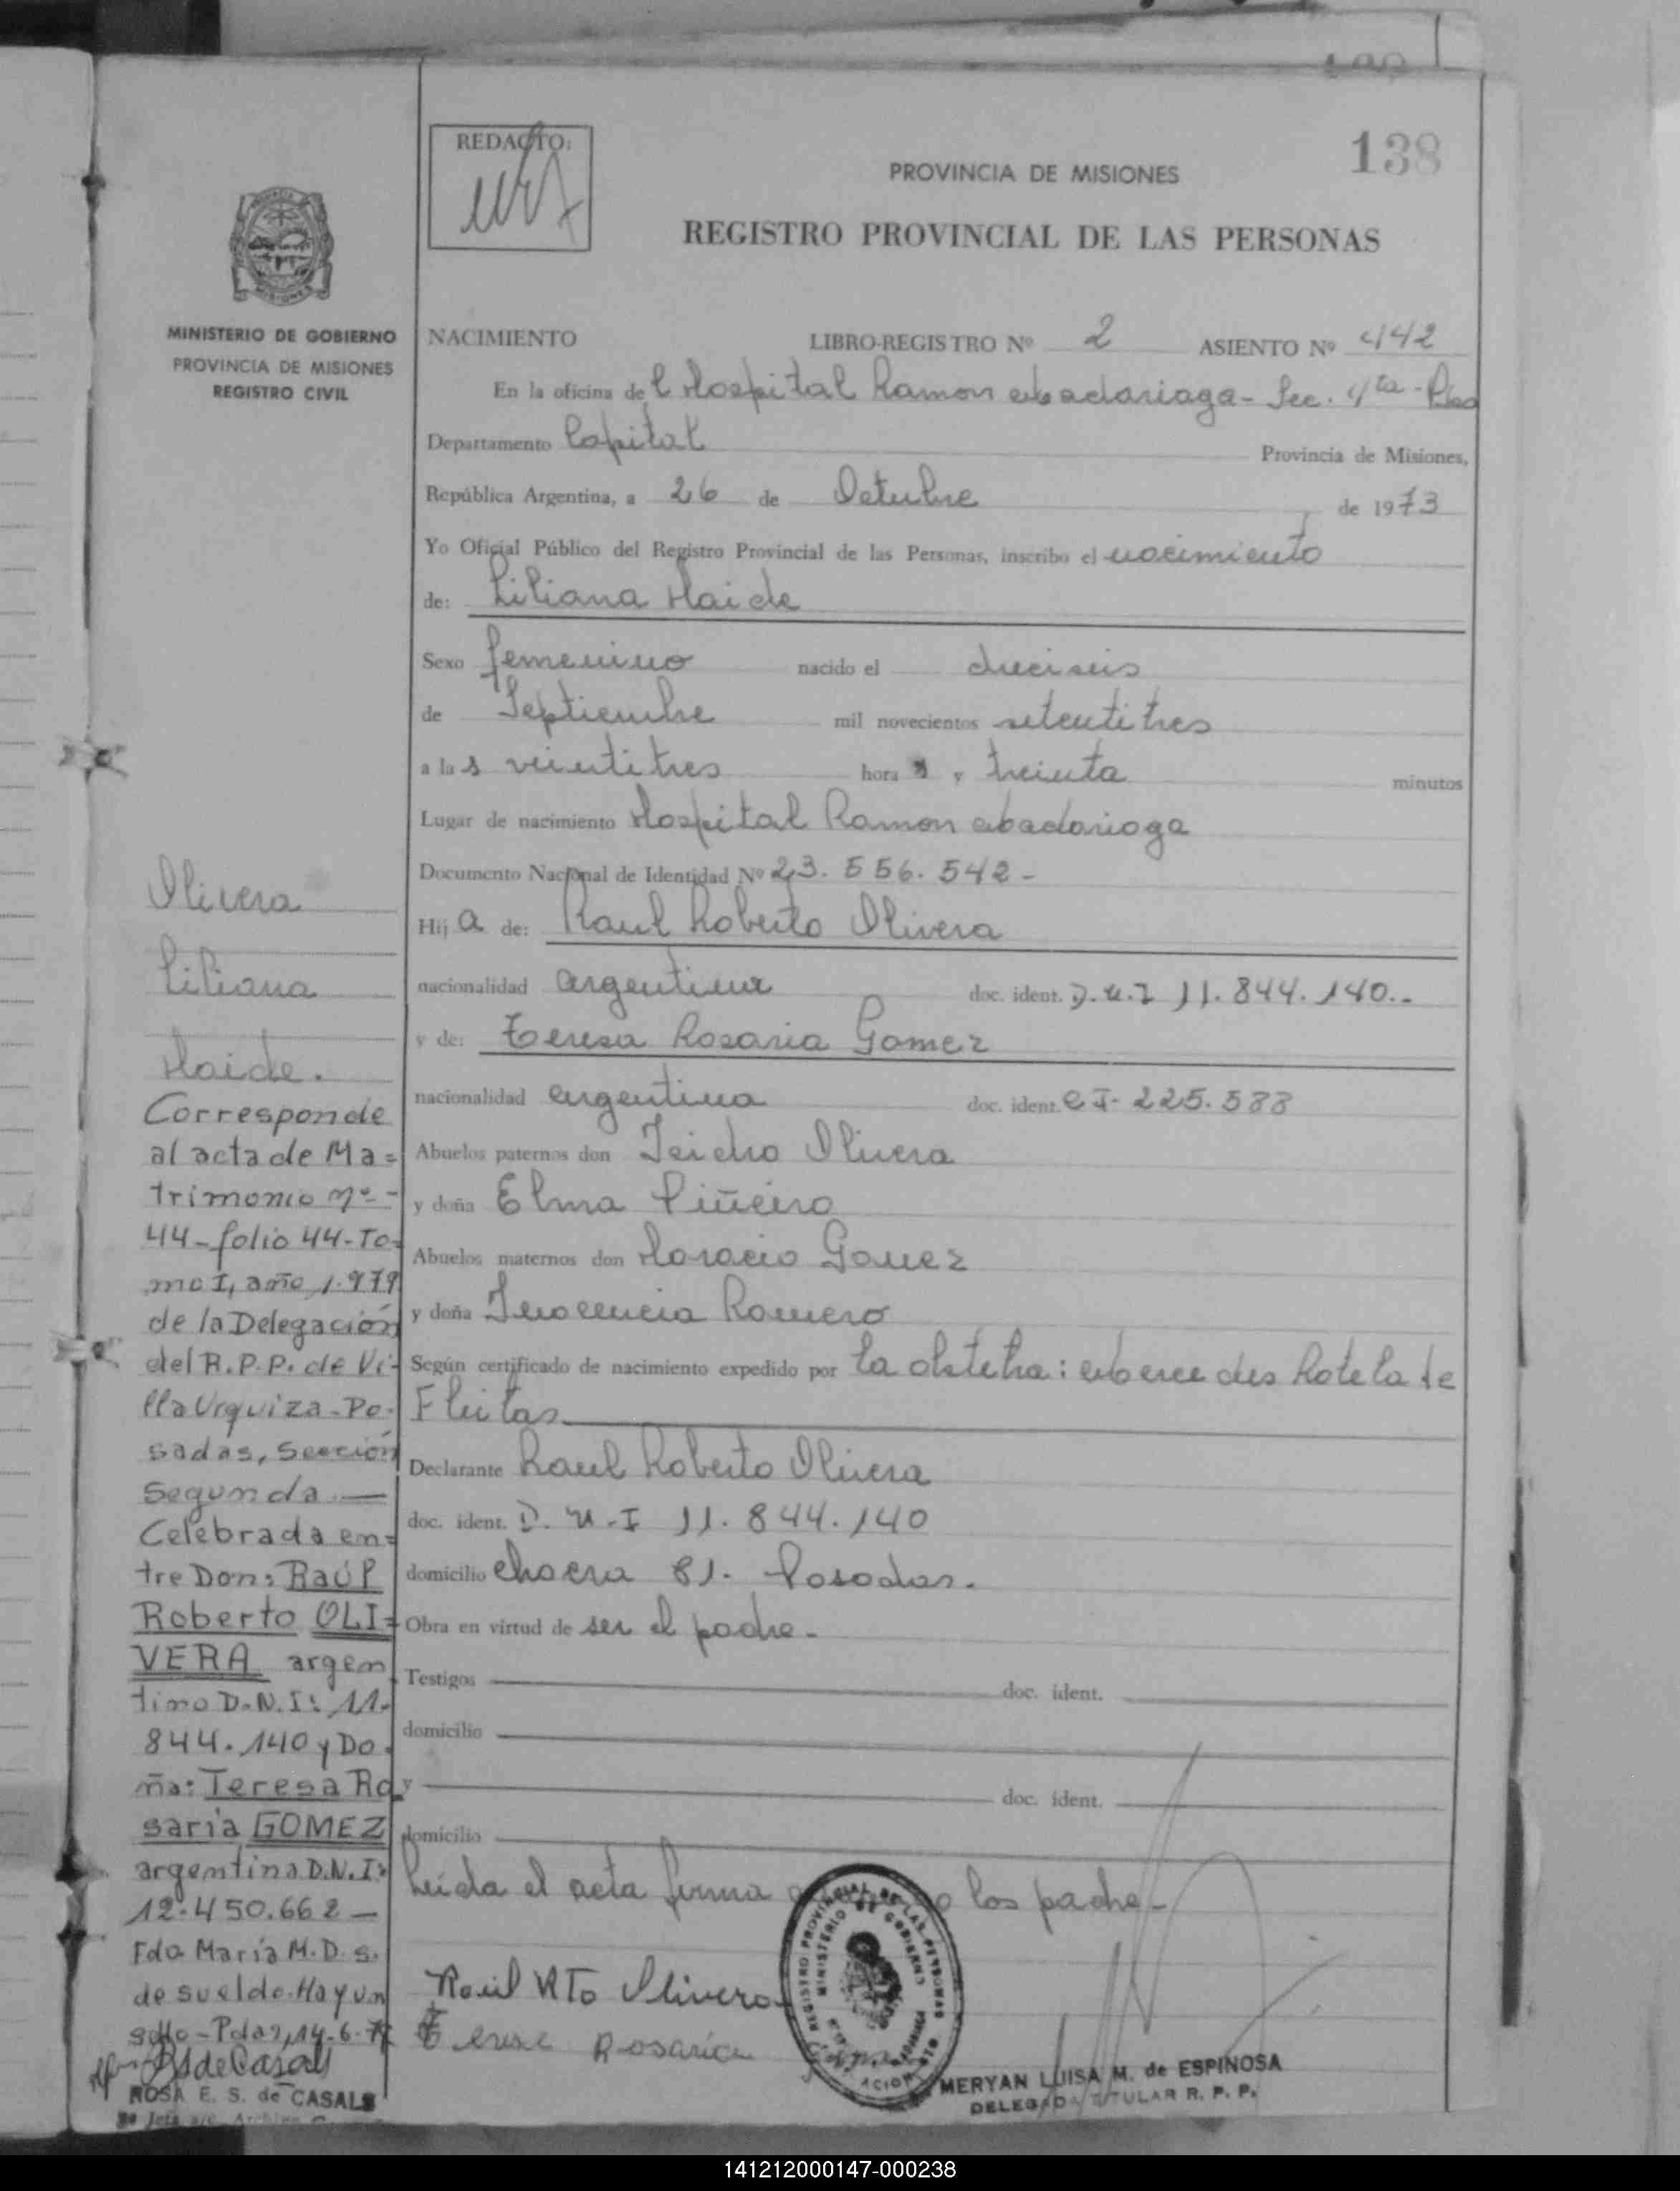 138
REDACTO:
PROVINCIA DE MISIONES
REGISTRO PROVINCIAL DE LAS PERSONAS
MISIONES
MINISTERIO DE GOBIERNO
PROVINCIA DE MISIONES
REGISTRO CIVIL
NACIMIENTO LIBRO-REGISTRO Nº 2 ASIENTO Nº 442
En la oficina del Hospital Ramon Madariaga - Sec. 4ta - Pdas
Departamento Capital Provincia de Misiones,
República Argentina, a 26 de Octubre de 1973
Yo Oficial Público del Registro Provincial de las Personas, inscribo el nacimiento
de: Liliana Haide
Sexo femenino nacido el dieciseis
de Septiembre mil novecientos setentitres
a las veintitres horas y treinta minutos
Lugar de nacimiento Hospital Ramon Madariaga
Documento Nacional de Identidad Nº 23.556.542-
Hija de: Raul Roberto Olivera
nacionalidad argentina doc. ident. D.N.I 11.844.140.-
y de: Teresa Rosaria Gomez
nacionalidad argentina doc. ident. C I- 225.588
Abuelos paternos don Isidro Olivera
y doña Elma Piñeiro
Abuelos maternos don Horacio Gomez
y doña Inocencia Romero
Según certificado de nacimiento expedido por la obstetra: Mercedes Rotela de
Fleitas
Declarante Raul Roberto Olivera
doc. ident. D.N.I 11.844.140
domicilio Chacra 81. Posadas.
Obra en virtud de ser el padre-
Testigos doc. ident.
domicilio
y doc. ident.
domicilio
Leida el acta firma los padre-
Raúl Rto Olivera
Terese Rosaria
REGISTRO PROVINCIAL DE LAS PERSONAS
MINISTERIO DE GOBIERNO
MERYAN LUISA M. de ESPINOSA
DELEGADA TITULAR R. P. P.
Olivera
Liliana
Haide.
Corresponde
al acta de Ma=
trimonio Nº-
44-folio 44-To-
mo I, año 1.979
de la Delegación
del R.P.P. de Vi-
lla Urquiza-Po-
sadas, Sección
Segunda.—
Celebrada en=
tre Don: Raúl
Roberto OLI=
VERA argen
tino D.N.I: 11.
844.140 y Do.
ña: Teresa Ro
saria GOMEZ
argentina D.N.I:
12.450.662-
Fdo María M.D.S.
de sueldo. Hay un
sello-Pdas, 14-6-
ROSA E. S. de CASALS
141212000147-000238